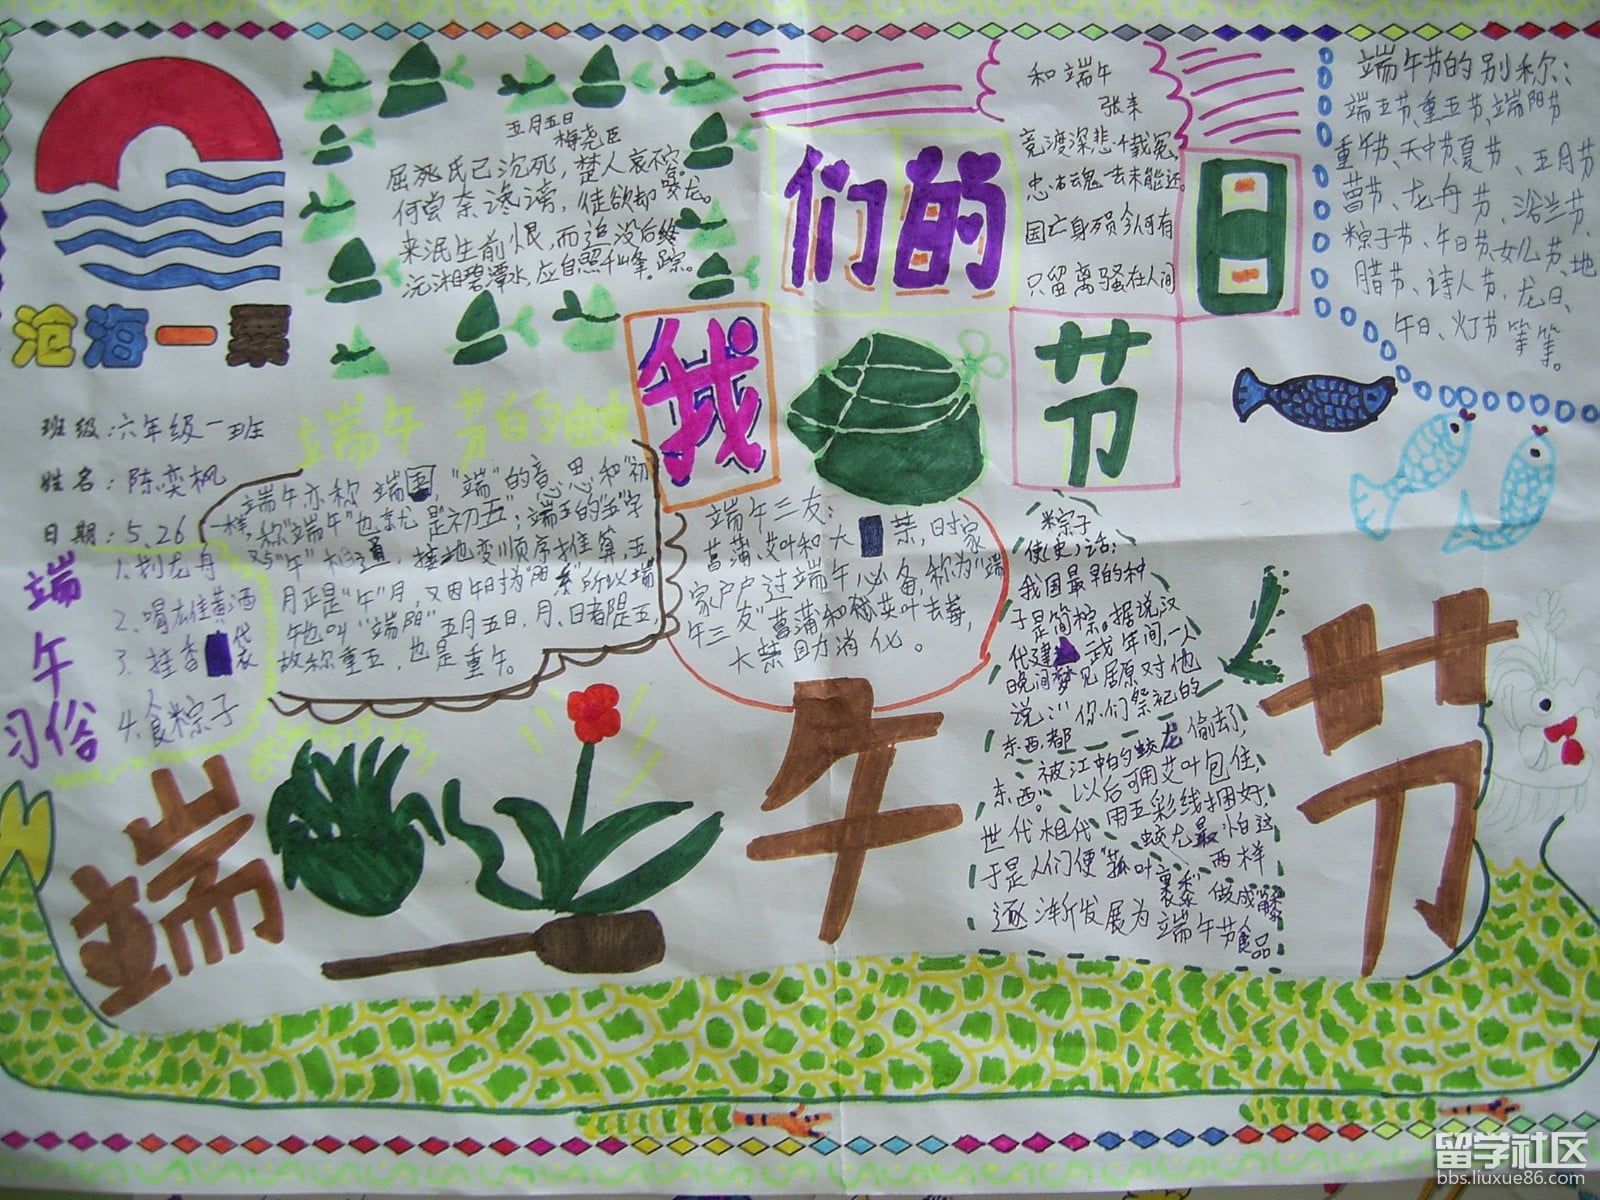 沧海一粟
班级:六年级一班
姓名:陈奕枫
日期:5.26
五月五日
梅尧臣
屈死氏已沉死，楚人哀不容。
何尝奈谗谤，徒欲却蛟龙。
来泯生前恨，而追没后踪。
沅湘碧潭水，应自照千峰。
我们的节日
和端午
张耒
竞渡深悲千载冤，
忠魂一去未能还。
国亡身殒今何有
只留离骚在人间
端午节的别称：
端五节、重五节、端阳节
重午节、天中节、夏节、五月节
菖节、龙舟节、浴兰节、
粽子节、午日节、女儿节、地
腊节、诗人节、龙日、
午日、灯节等等。
端午节的由来
端午亦称端五，"端"的意思和"初"
一样，称"端午"也就是初五；端五的"五"字
又与"午"相通，按地支顺序推算，五
月正是"午"月，又因午时为"阳辰"所以端
午也叫"端阳"五月五日，月、日都是五，
故称重五，也是重午。
端午习俗
1.划龙舟
2.喝雄黄酒
3.挂香袋
4.食粽子
端午三友：
菖蒲、艾叶和大蒜，旧时家
家户户过端午必备，称为"端
午三友"菖蒲和艾叶去毒，
大蒜助消化。
粽子
使(史)话：
我国最早的种
子是筒粽。据说汉
代建武年间，一人
晚间梦见屈原对他
说："你们祭祀的
东西都
被江中的蛟龙偷去了，
东西。以后可用艾叶包住，
用五彩线捆好，
世代相代、蛟龙最怕这
于是人们便"菰叶裹黍"两样
做成"
逐渐发展为端午节食品
端午节
留学社区
bbs.liuxue86.com